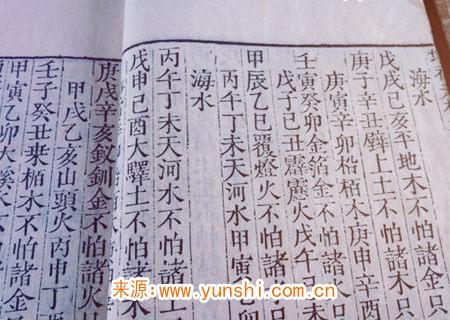 海水
戊戌己亥平地木不怕諸金只
庚子辛丑壁上土不怕諸木只
庚寅辛卯松柏木庚申辛酉
壬寅癸卯金箔金不怕諸火只
戊子己丑霹靂火戊午己
甲辰乙巳覆燈火不怕諸
丙午丁未天河水甲寅乙
海水
丙午丁未天河水不怕諸
戊申己酉大驛土不怕諸
庚戌辛亥釵釧金不怕諸火
甲戌乙亥山頭火丙申丁
壬子癸丑桑柘木不怕諸
甲寅乙卯大溪水不
来源:www.yunshi.com.cn